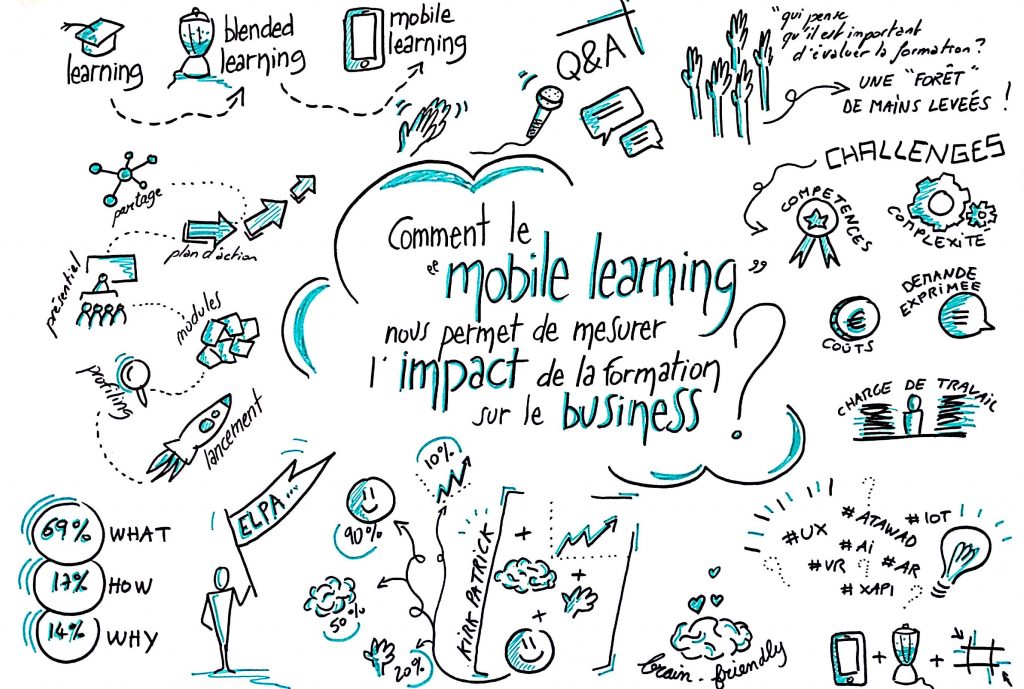 learning
blended
learning
mobile
learning
Q&A
"qui pense
qu'il est important
d'évaluer la formation?
UNE "FORÊT"
DE MAINS LEVEÉS !
CHALLENGES
COMPETENCES
COMPLEXITÉ
DEMANDE
EXPRIMÉE
€
€
COÛTS
CHARGE DE TRAVAIL
partage
plan d'action
présentiel
modules
profiling
lancement
Comment le
"mobile learning"
nous permet de mesurer
l'impact de la formation
sur le business
?
69% WHAT
17% HOW
14% WHY
ELPA...
10%
90%
50%
20%
KIRKPATRICK
+
+
+
brain-friendly
#UX
#ATAWAD
#IOT
#Ai
#VR
#AR
#XAPI
? ?
+ +